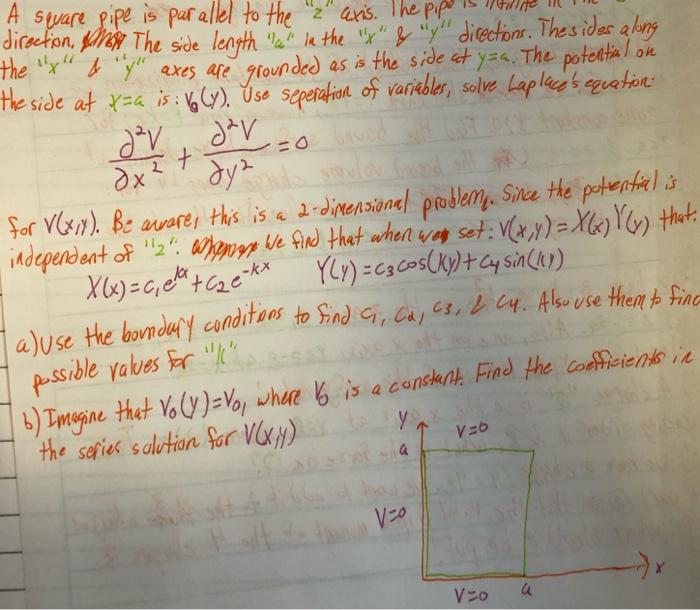 A square pipe is parallel to the "z" axis. The pipe is infinite in the
direction, The side length "a" in the "x" & "y" directions. The sides along
the "x" & "y" axes are grounded as is the side at y=a. The potential on
the side at x=a is: V₀(y). Use seperation of variables, solve Laplace's equation:
∂²V/∂x² + ∂²V/∂y² = 0
for V(x,y). Be aware, this is a 2-dimensional problem. Since the potential is
independent of "z". We find that when we set: V(x,y)=X(x)Y(y) that:
X(x)=c₁e^kx+c₂e^-kx Y(y)=c₃cos(ky)+c₄sin(ky)
a) Use the boundary conditions to find c₁, c₂, c₃, & c₄. Also use them to find
possible values for "k"
b) Imagine that V₀(y)=V₀, where V₀ is a constant. Find the coefficients in
the series solution for V(x,y)
y
V=0
a
V=0
x
V=0
a